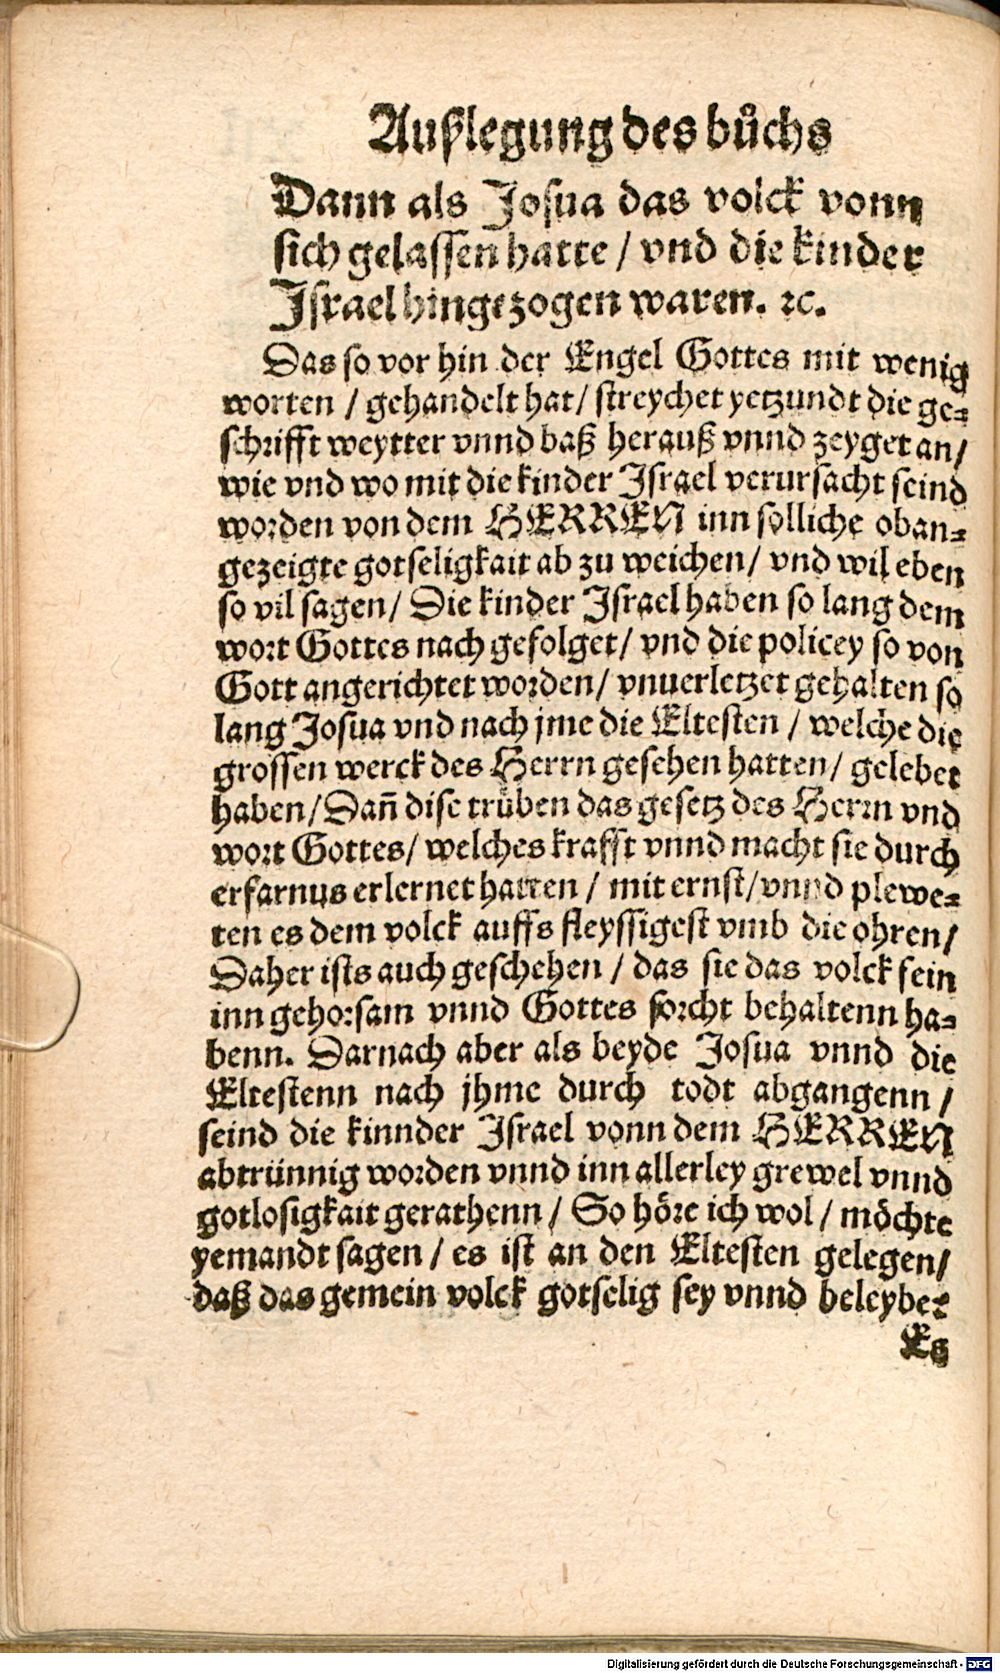 Außlegung des bůchs
Dann als Josua das volck vonn
sich gelassen hatte / vnd die kinder
Israel hingezogen waren. ꝛc.
Das so vor hin der Engel Gottes mit wenig
worten / gehandelt hat / streychet yetzundt die ge-
schrifft weytter vnnd baß herauß vnnd zeyget an /
wie vnd wo mit die kinder Israel verursacht seind
worden von dem HERREN inn solliche oban-
gezeigte gotseligkait ab zu weichen / vnd wil eben
so vil sagen / Die kinder Israel haben so lang dem
wort Gottes nach gefolget / vnd die policey so von
Gott angerichtet worden / vnuerletzet gehalten so
lang Josua vnd nach jme die Eltesten / welche die
grossen werck des Herrn gesehen hatten / gelebet
haben / Dañ dise trüben das gesetz des Herrn vnd
wort Gottes / welches krafft vnnd macht sie durch
erfarnus erlernet hatten / mit ernst / vnnd plewe-
ten es dem volck auffs fleyssigest vmb die ohren /
Daher ists auch geschehen / das sie das volck fein
inn gehorsam vnnd Gottes forcht behaltenn ha-
benn. Darnach aber als beyde Josua vnnd die
Eltestenn nach jhme durch todt abgangenn /
seind die kinnder Israel vonn dem HERREN
abtrünnig worden vnnd inn allerley grewel vnnd
gotlosigkait gerathenn / So höre ich wol / möchte
yemandt sagen / es ist an den Eltesten gelegen /
daß das gemein volck gotselig sey vnnd beleybet
Es
Digitalisierung gefördert durch die Deutsche Forschungsgemeinschaft - DFG